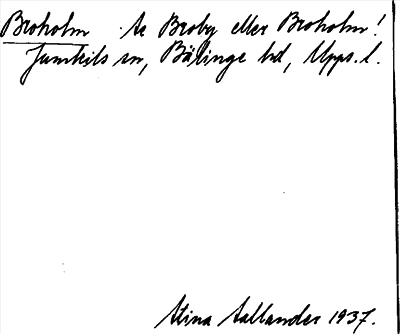 Broholm se Broby eller Broholm!
Jumkils sn, Bälinge hd, Upps. l.
Stina Sallander 1937.